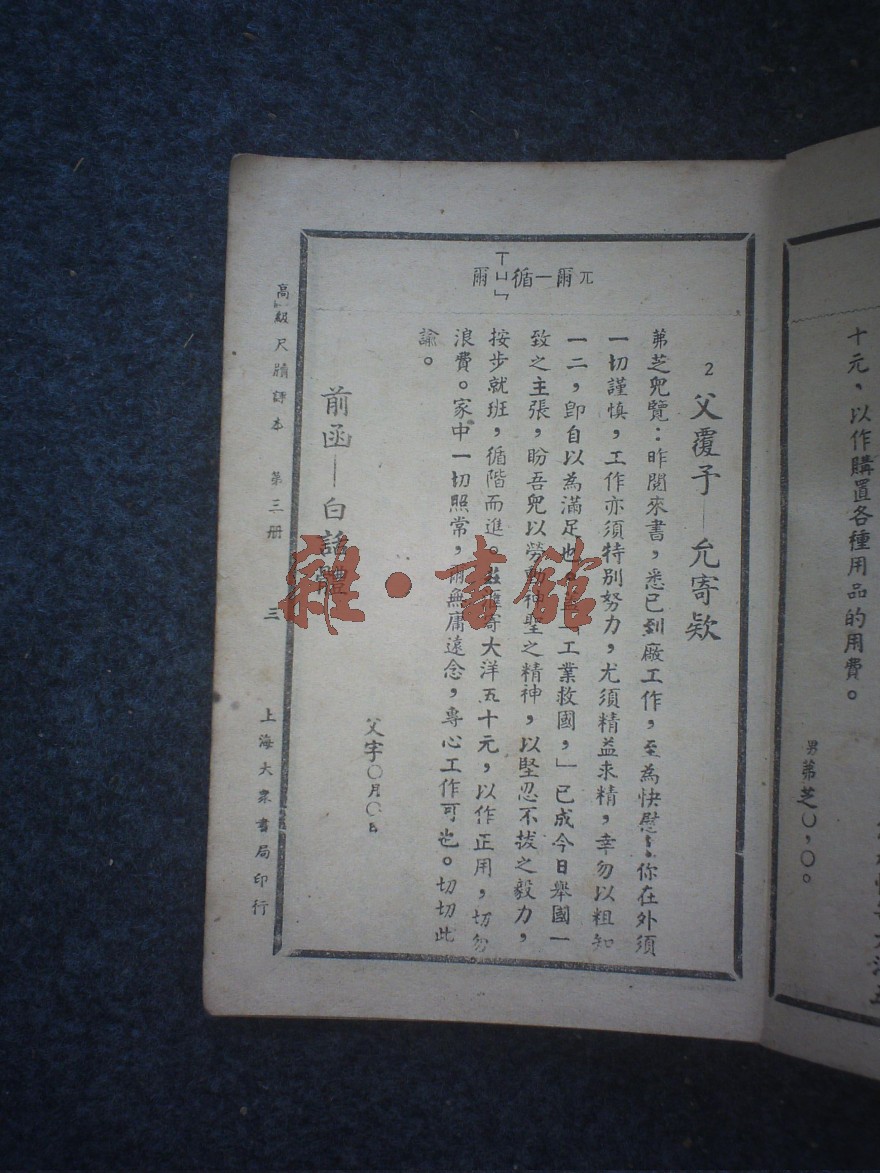 十元，以作購置各種用品的用費。
男弟芝〇，〇。
爾 ㄒㄩㄣ 循一爾 ㄦ
2 父覆子—允寄欵
弟芝兒覽：昨閱來書，悉已到廠工作，至為快慰！你在外須
一切謹慎，工作亦須特別努力，尤須精益求精，幸勿以粗知
一二，卽自以為滿足也。工業救國，」已成今日舉國一
致之主張，盼吾兒以勞動神聖之精神，以堅忍不拔之毅力，
按步就班，循階而進。寄大洋五十元，以作正用，切勿
浪費。家中一切照常，爾無庸遠念，專心工作可也。切切此
諭。
父字〇月〇日
前函—白話體
高級尺牘課本 第三册 三 上海大衆書局印行
雜·書館